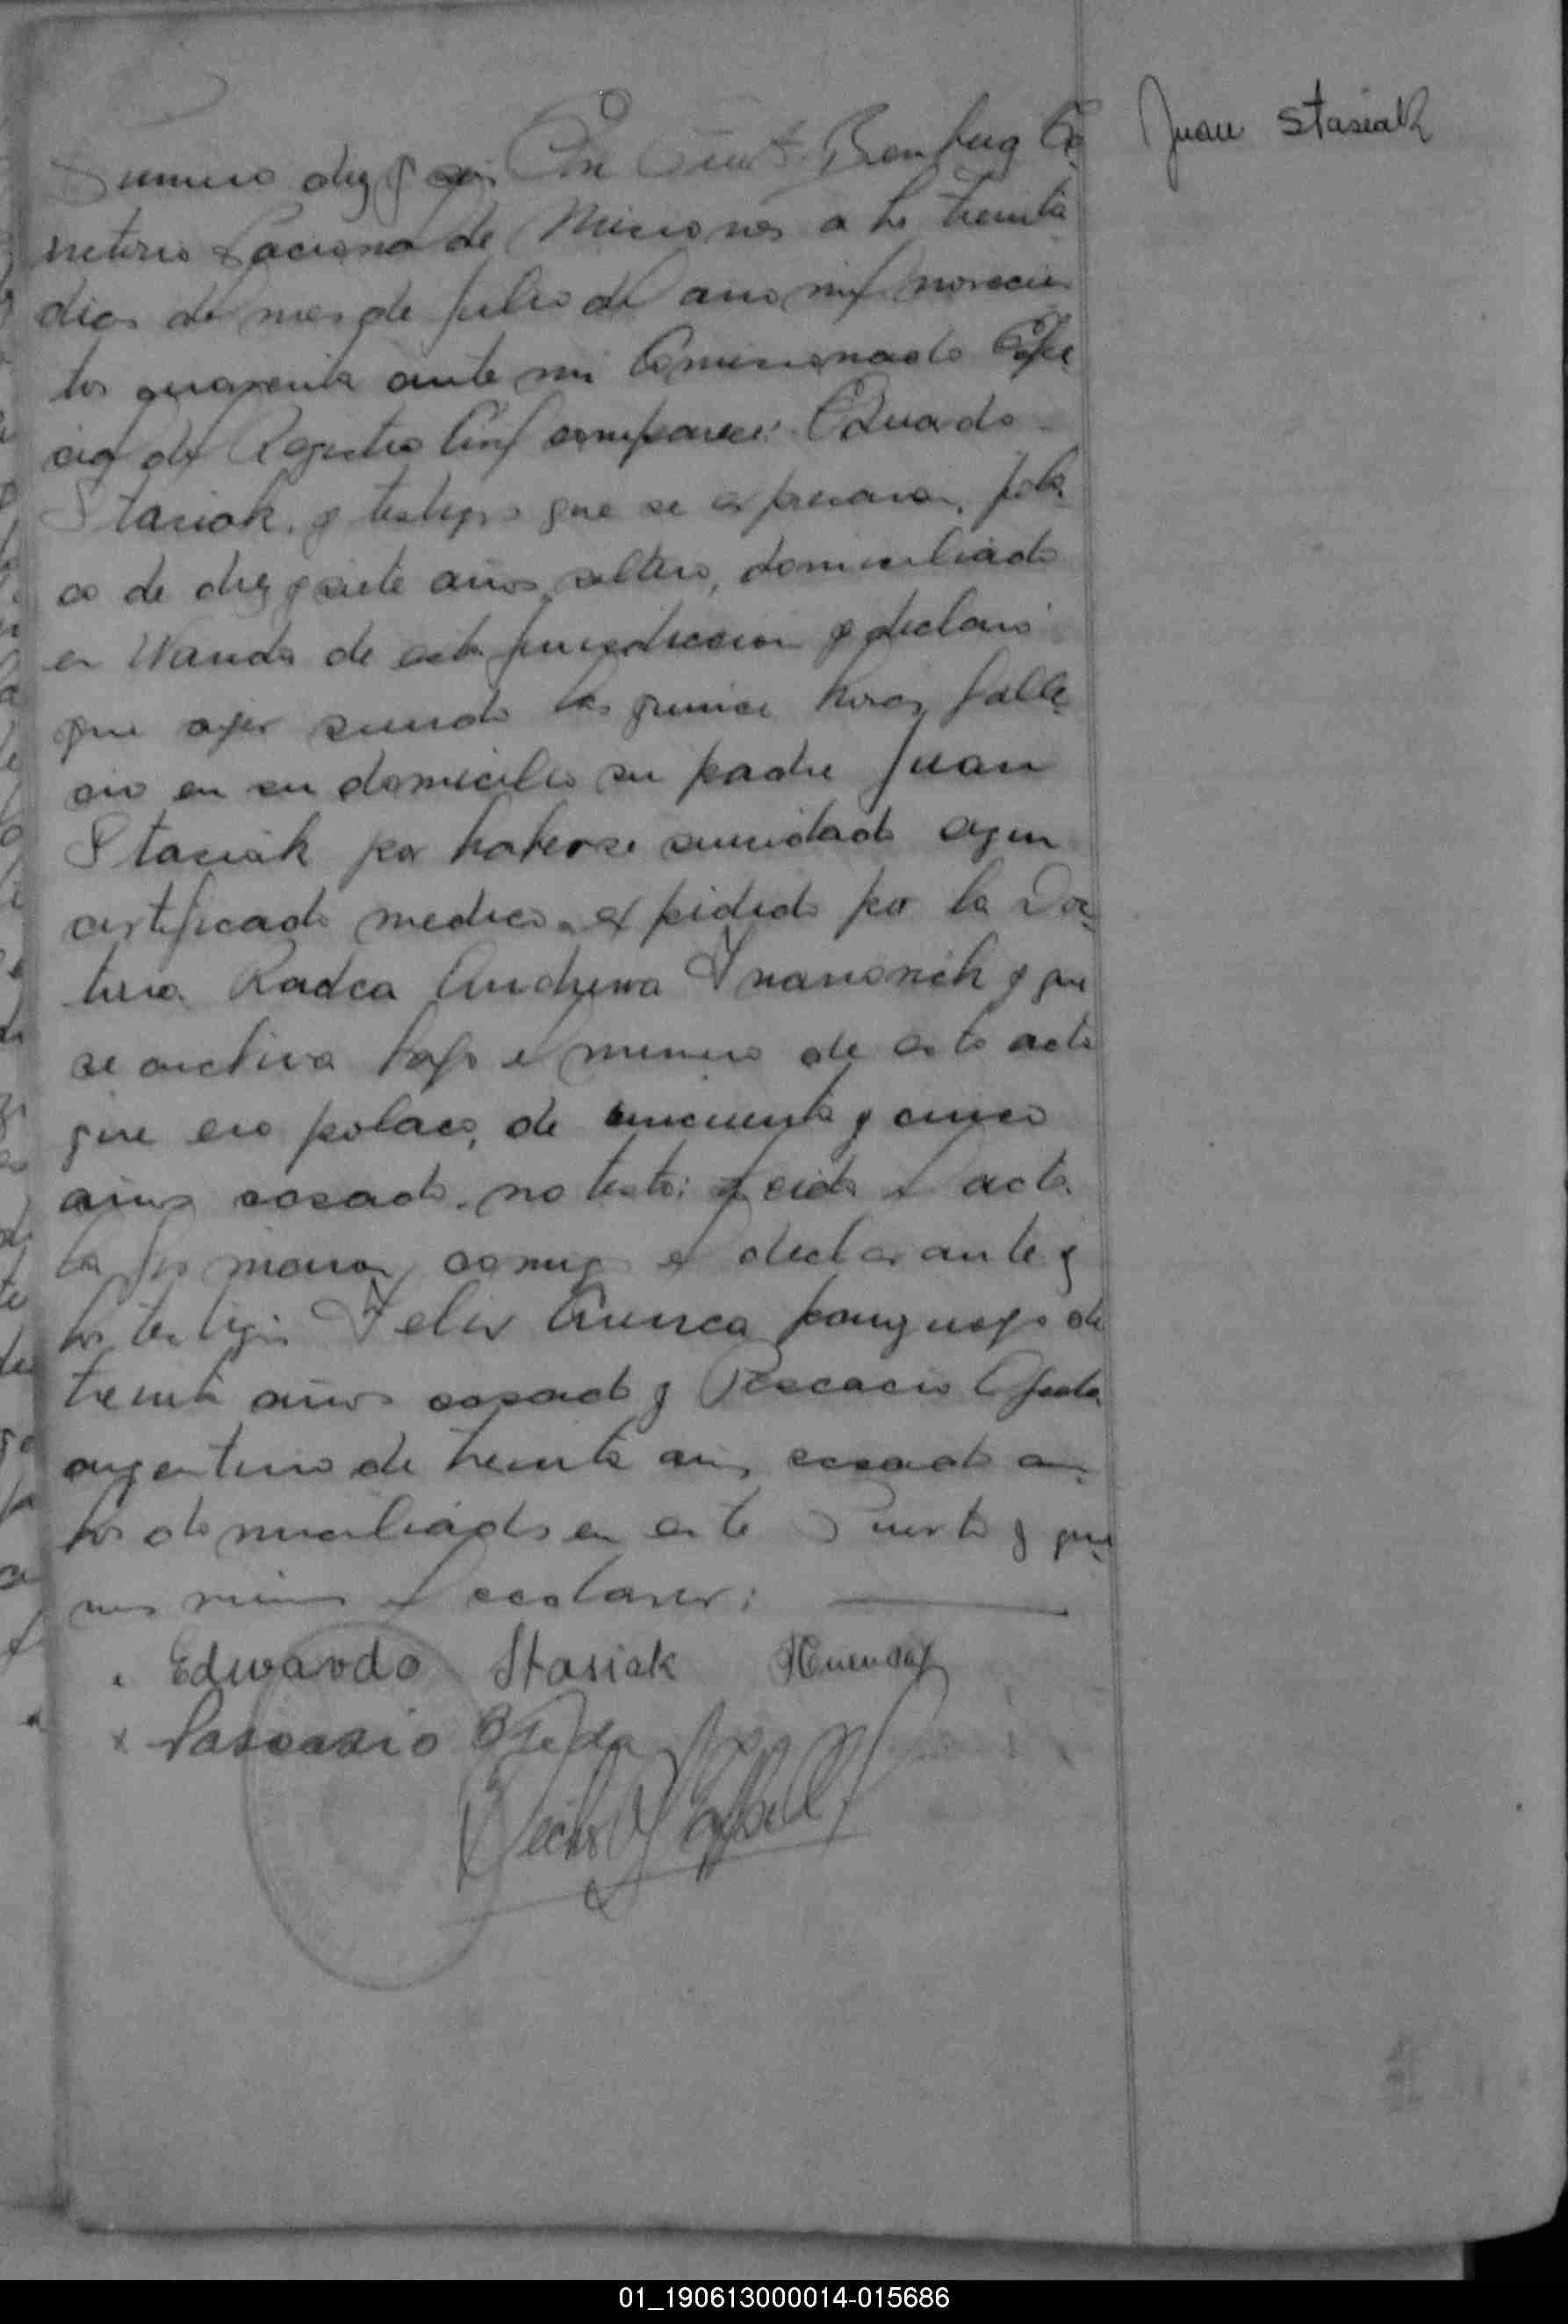 Juan Stasiak
Numero diez y seis En Puerto Bemberg Te
rritorio Nacional de Misiones a los treinta
dias del mes de Julio del año mil novecien
tos cuarenta ante mi Comisionado Espe
cial del Registro Civil comparece: Eduardo
Stasiak, y testigos que se expresaran, pola
co de diez y siete años soltero, domiciliado
en Wanda de esta jurisdiccion y declaró
que ayer siendo las quince horas falle
cio en su domicilio su padre Juan
Stasiak por haberse suicidado segun
certificado medico expedido por la Doc
tora Radca Andrewa Ivanovich y que
se archiva bajo el numero de esta acta
que era polaco, de cincuenta y cinco
años casado, no testó: leida el acta
la firmaron conmigo el declarante y
los testigos Felix Cuenca paraguayo de
treinta años casado y Pascacio Ojeda
argentino de treinta años casado am
bos domiciliados en este Puerto y quie
nes vieron el cadaver:
Edwardo Stasiak
Pascasio Ojeda
01_190613000014-015686